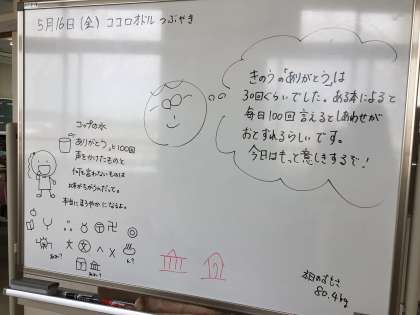 5月16日(金) ココロオドル つぶやき
きのうの「ありがとう」は
30回ぐらいでした。ある本によると
毎日100回言えるとしあわせが
おとずれるらしいです。
今日はもっと意しきするぞ!
コップの水
「ありがとう」と100回
声をかけたものと
何も言わないものは
味がちがうんだって。
本当にまろやかになるよ。
文
本日のおもさ
80.4kg